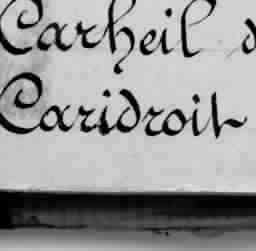 Carheil
Caridroit